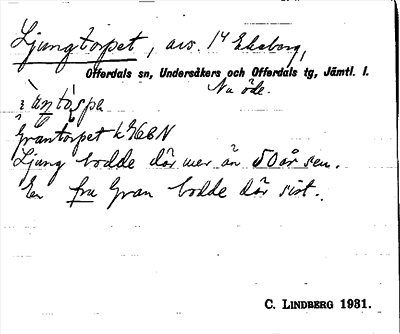 Ljungtorpet, avs. 1⁴ Ekeberg,
Offerdals sn, Undersåkers och Offerdals tg, Jämtl. l.
Nu öde.
Grantorpet
Ljung bodde där mer än 50 år sen.
En fru Gran bodde där sist.
C. LINDBERG 1981.